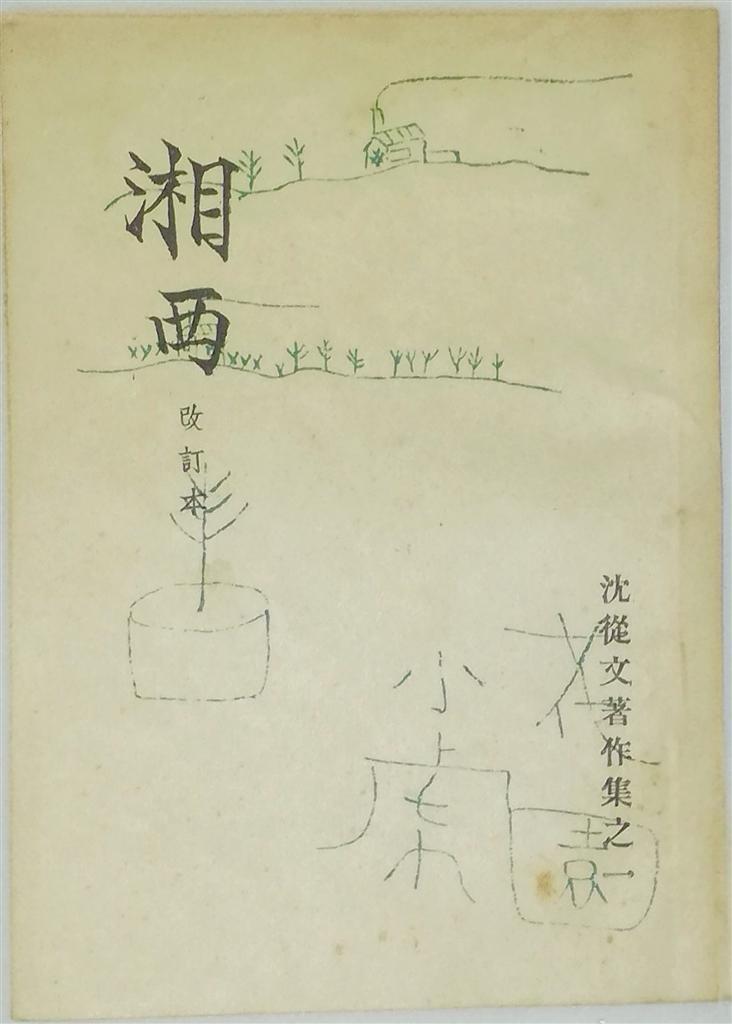 湘西
改訂本
沈從文著作集之一
小虎
花園